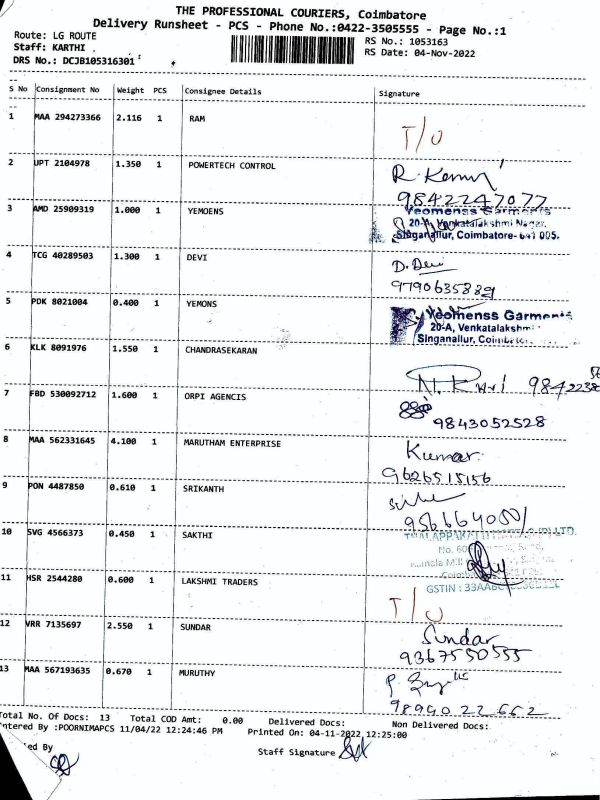 THE PROFESSIONAL COURIERS, Coimbatore
Delivery Runsheet - PCS - Phone No.:0422-3505555 - Page No.:1
Route: LG ROUTE
RS No.: 1053163
Staff: KARTHI .
RS Date: 04-Nov-2022
DRS No.: DCJB105316301
S No Consignment No Weight PCS Consignee Details Signature
1 MAA 294273366 2.116 1 RAM
T/O
2 UPT 2104978 1.350 1 POWERTECH CONTROL
9842247077
3 AMD 25909319 1.000 1 YEMOENS
Yeomenss Garments
20-A, Venkatalakshmi Nagar,
Singanallur, Coimbatore- 641 005.
4 TCG 40289503 1.300 1 DEVI
D. Devi
9790635889
5 PDK 8021004 0.400 1 YEMONS
Yeomenss Garments
20-A, Venkatalakshmi
Singanallur,
6 KLK 8091976 1.550 1 CHANDRASEKARAN
7 FBD 530092712 1.600 1 ORPI AGENCIS
9843052528
8 MAA 562331645 4.100 1 MARUTHAM ENTERPRISE
Kumar
9626515156
9 PON 4487850 0.610 1 SRIKANTH
10 SVG 4566373 0.450 1 SAKTHI
11 HSR 2544280 0.600 1 LAKSHMI TRADERS
GSTIN :
T/O
12 VRR 7135697 2.550 1 SUNDAR
Sundar
9367550555
13 MAA 567193635 0.670 1 MURUTHY
9894022662
Total No. Of Docs: 13 Total COD Amt: 0.00 Delivered Docs: Non Delivered Docs:
ntered By :POORNIMAPCS 11/04/22 12:24:46 PM Printed On: 04-11-2022 12:25:00
ed By
Staff Signature